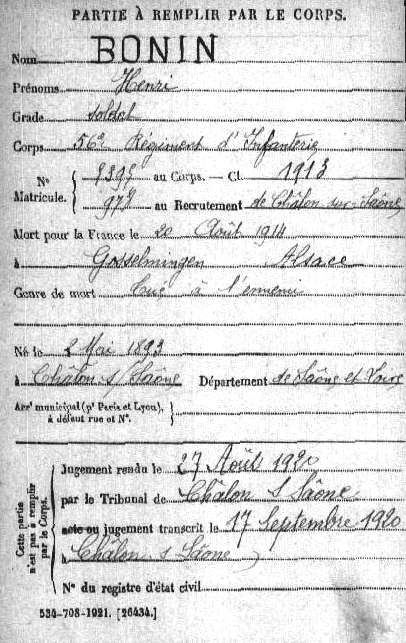 PARTIE À REMPLIR PAR LE CORPS.
Nom BONIN
Prénoms Henri
Grade soldat
Corps 56e Régiment d'Infanterie
N° Matricule. { au Corps. — Cl. 1913
979 au Recrutement de Châlon sur Saône
Mort pour la France le 20 Août 1914
à Gosselmingen Alsace
Genre de mort tué à l'ennemi
Né le 2 Mai 1893
à Châlon s/ Saône Département de Saône et Loire
Arrt municipal (pr Paris et Lyon),
à défaut rue et N°. {
Cette partie n'est pas à remplir par le Corps.
Jugement rendu le 27 Août 1920
par le Tribunal de Châlon S Saône
acte ou jugement transcrit le 17 Septembre 1920
à Châlon s Saone
N° du registre d'état civil
534-708-1921. [26434.]